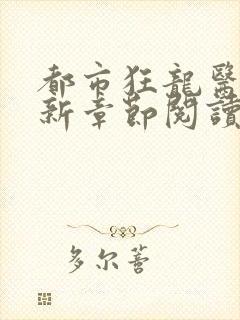 都市狂龍醫
新章節閱讀
多尔薈